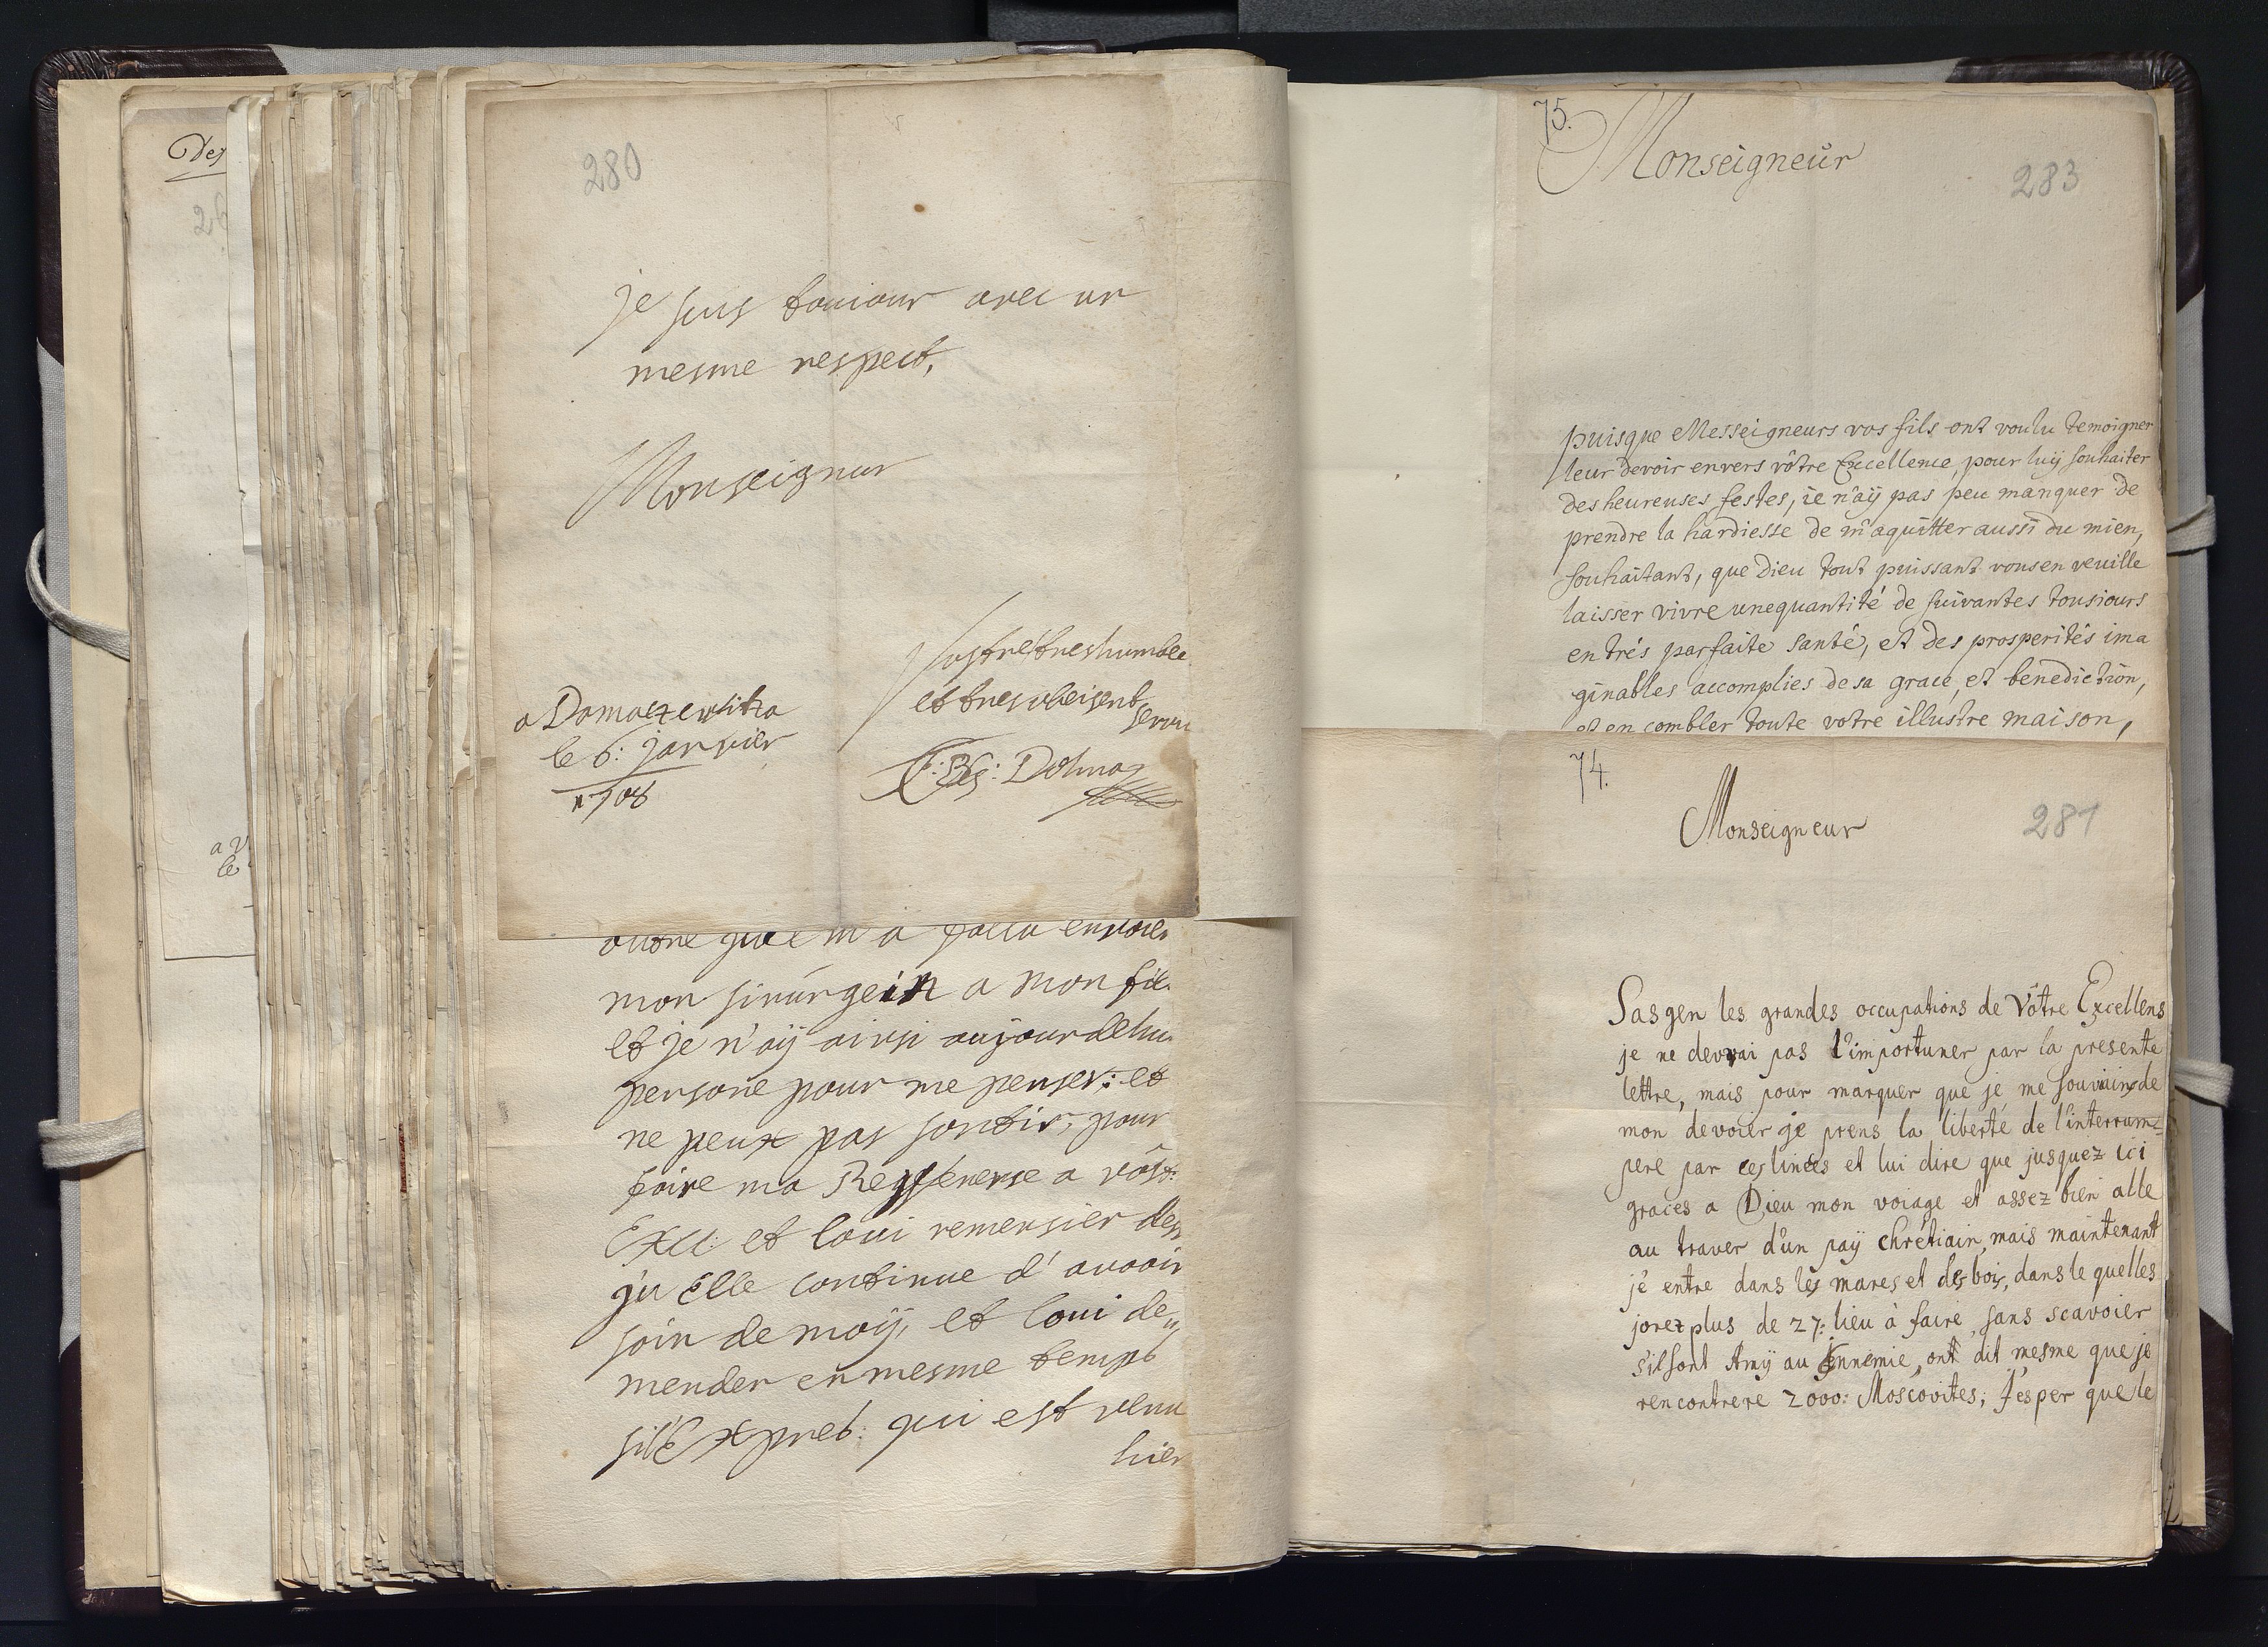 Des
26
a V
le
280
je suis toujour avec un
mesme respect,
Monseignur
Vostre treshumble
et tres obeisent
serv
a Domaczewitza
le 6: janvier
1708
Dohna
mon sirurgein a mon fil
et je n'aÿ ainsi aujourdehu
persone pour me penser: et
ne peux pas sortir, pour
faire ma Refferense a vost:
Exce: et loui remersier de
qu Elle continue d'avoair
soin de moÿ, et loui de„
mender en mesme tempt
sil Expret: qui est venu
hier
75.
Monseigneur
283
puisque Messeigneurs vos fils ont voulu temoigner
leur devoir envers vôtre Excellence, pour luÿ souhaiter
des heureuses festes, ie n'aÿ pas peu manquer de
prendre la hardiesse de m'aquitter aussi du mien,
souhaitant, que Dieu tout puissant vous en veuille
laisser vivre une quantité de suivantes tousiours
en trés parfaite santé, et des prosperités ima
ginables accomplies de sa grace, et benediction,
et en combler toute votre illustre maison,
74.
Monseigneur
281
Sasgen les grandes occupations de Vôtre Excellens
je ne devrai pas l'importuner par la presente
lettre, mais pour marquer que je me souviains de
mon devoier je prens la liberté de l'interrum=
pere par ces linées et lui dire que jusquez ici
graces a Dieu mon voiage et assez bien alle
au traver d'un paÿ chrétiain, mais maintenant
j'é entre dans les mares et des bois, dans le quelles
jorez plus de 27: lieu à faire, sans scavoier
s'il sont Amÿ au Ennemie, ont dit mesme que je
rencontrere 2000: Moscovites; J'esper que le